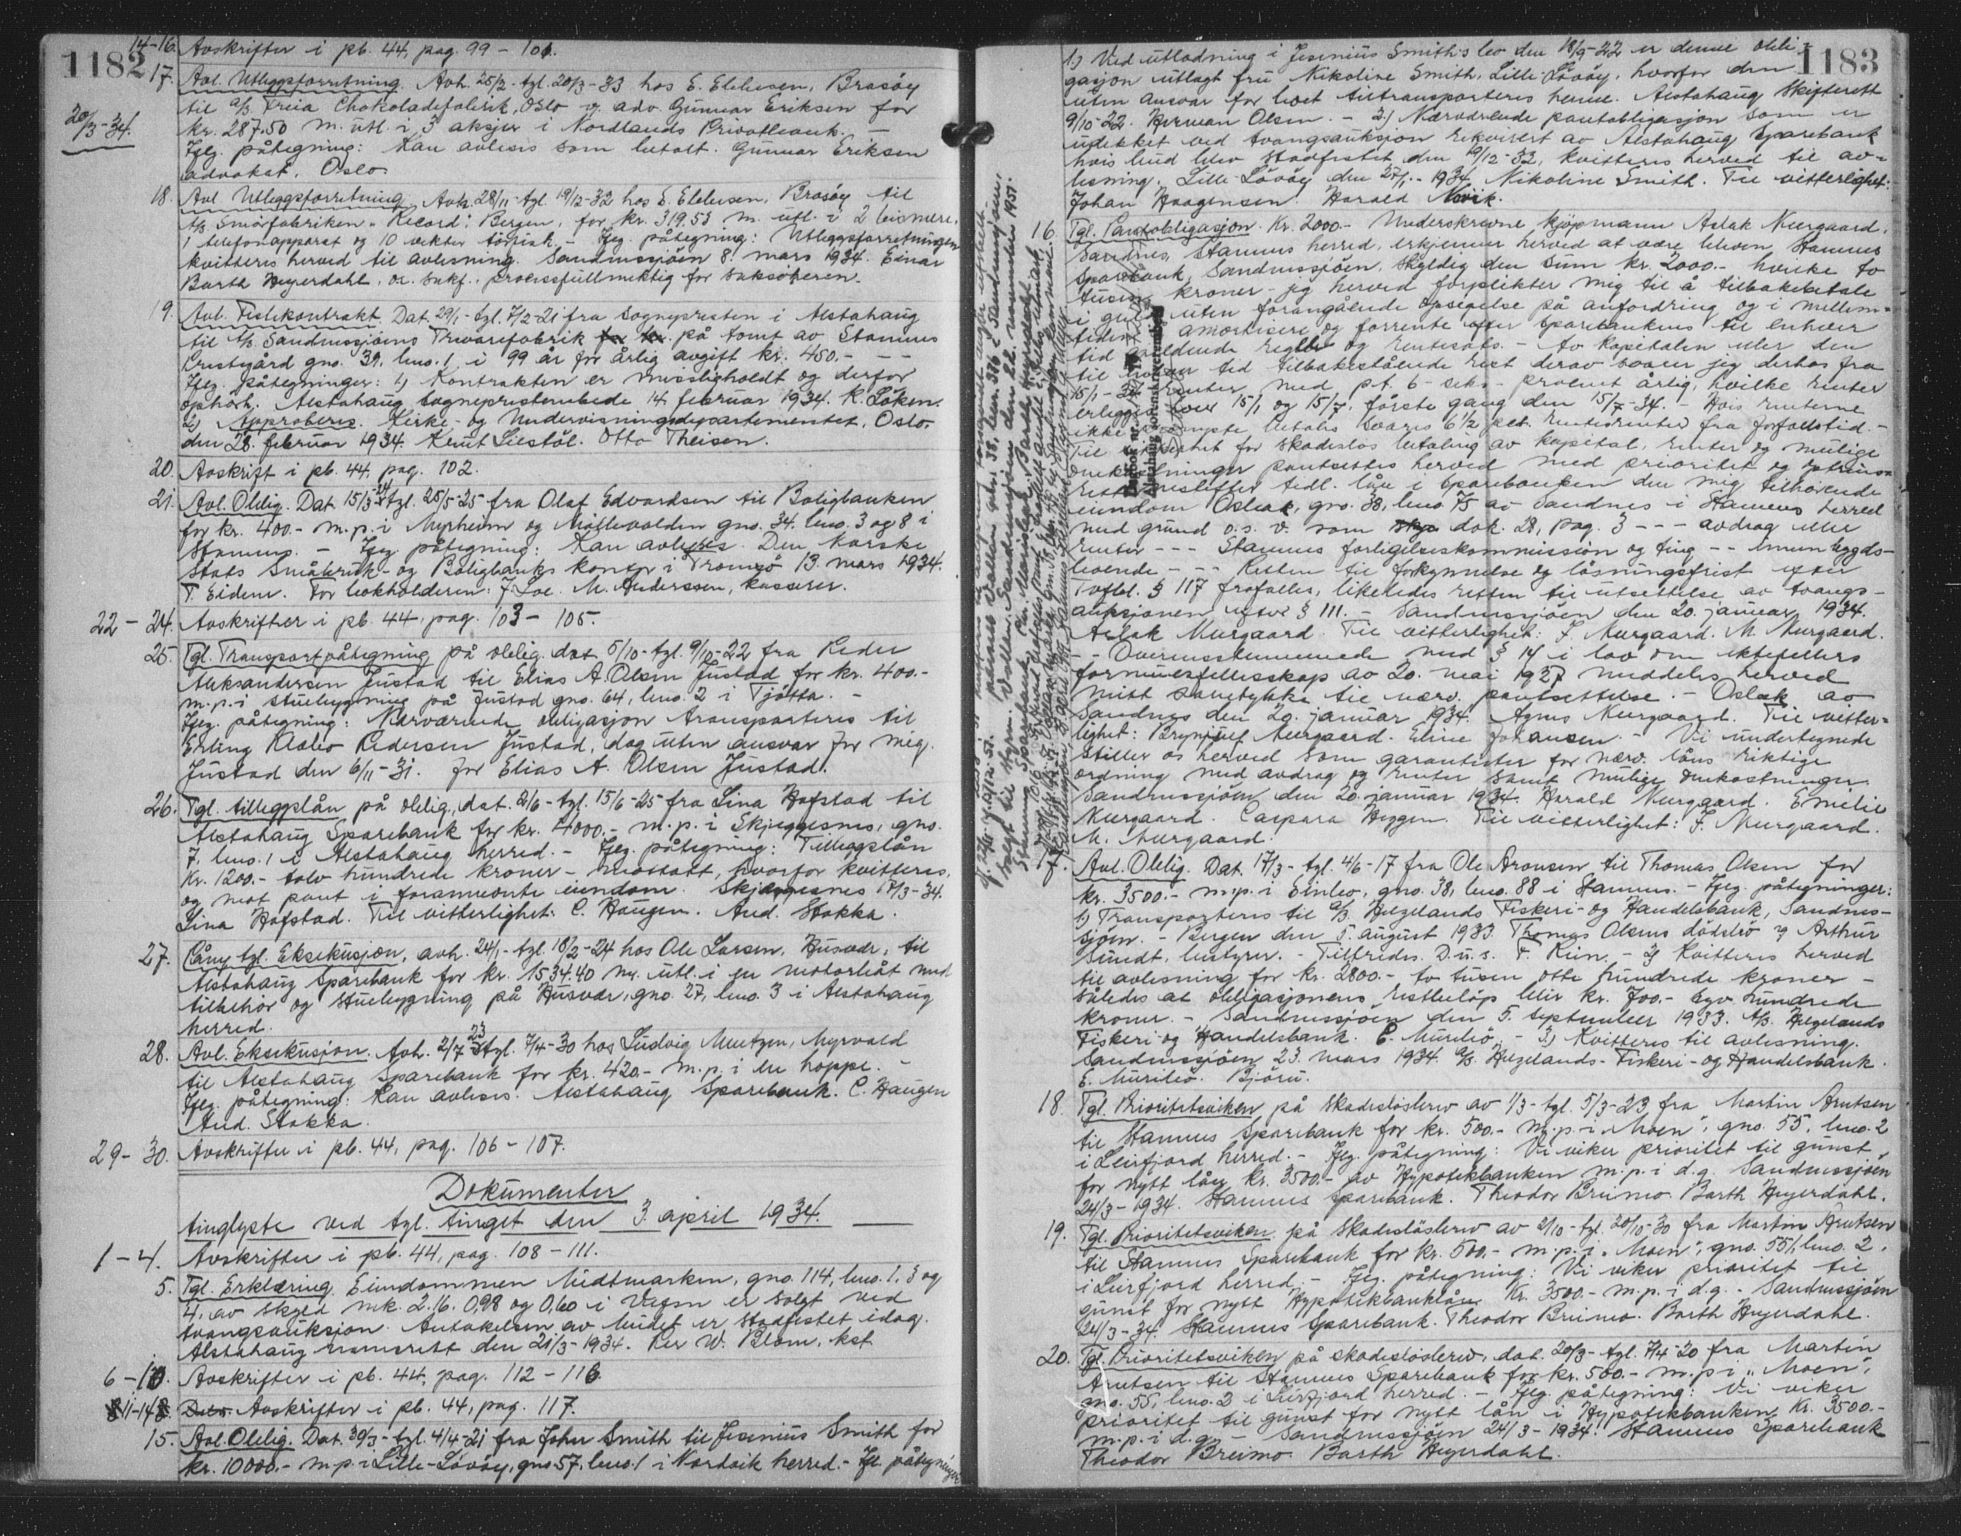 1182
14-16. Avskrifter i pb. 44, pag. 99 - 101.
17. Avl. Utleggsforretning. Avh. 25/2- tgl. 20/3-33 hos E. Ellefsen, Brasöy
til a/s Freia Chokoladefabrik, Oslo v adv. Gunnar Eriksen for
20/3-34.
kr. 287.50 m. utl. i 3 aksjer i Nordlands Privatbank. -
Fög. påtegning: Kan avlesis som betalt. Gunnar Eriksen
advokat. Oslo.
18. Avl. Utleggsforretning. Avh. 28/11- tgl. 19/12-32 hos E. Ellefsen, Brasöy til
A/s Smörfabriken "Record", Bergen, for kr. 319.53 m. utl. i 2
1 telefonapparat og 10 vekter törfisk. - Fög. påtegning: Utleggsforretningen
kvitteris herved til avlesning. Sandnessjöen 8. mars 1934. Einar
Barth Heyerdahl, o.r. sakf., procesfullmektig for saksökeren.
19. Avl. Festekontrakt. Dat. 29/1- tgl. 7/2-21 fra Sognepresten i Alstahaug
til A/s Sandnessjöens Trevarefabrik på tomt av Stamnes
Prestegård gno. 39, bno. 1, i 99 år for årlig avgift kr. 450.- - -
Fög. påtegninger: 1) Kontrakten er misligholdt og derfor
ophörh. Alstahaug sogneprestembede 14. februar 1934. K. Löken.
2) Approberes. Kirke- og Undervisningsdepartementet, Oslo
den 28. februar 1934. Knut Liestöl. Otto Theisen.
20. Avskrift i pb. 44, pag. 102.
21. Avl. Oblig. Dat. 15/5-24 tgl. 25/5-25 fra Olaf Edvardsen til Boligbanken
for kr. 400.- m.p. i Myrheim og Möllevolden gno. 34. bno. 3 og 8 i
Stamnes. - Fög. påtegning: Kan avlyses. Den Norske
Stats Småbruk- og Boligbanks kontor i Tromsö 13. mars 1934.
T. Eidem. For bokholderen: J. Loe. M. Anderssen, kasserer.
22 - 24. Avskrifter i pb 44, pag. 103 - 105.
25. Tgl. Transportpåtegning på oblig. dat 5/10- tgl. 9/10-22 fra Peder
Aleksandersen Justad til Elias A. Olsen Justad for kr. 400.-
m.p. i stuebygning på Justad gno. 64, bno. 2 i Tjötta. -
Fög. påtegning: Nærværende obligasjon transporteris til
Erling Pedersen Justad, dog uten ansvar for mig.
Justad den 6/11-31. for Elias A. Olsen Justad.
26. Tgl. tilleggslån på oblig. dat. 2/6- tgl. 15/6-25 fra Lina Hofstad til
Alstahaug Sparebank for kr. 4000.- m.p. i Skjeggesnes, gno.
7, bno. 1 i Alstahaug herred. - Fög. påtegning: Tilleggslån
Kr. 1200.- tolv hundrede kroner - mottatt, hvorfor kvitteres,
og mot pant i forannevnte eiendom. Skjeggesnes 17/3-34.
Lina Hofstad. Til vitterlighet: C. Haugen. And. Stokka.
27. Cåny tgl. Eksekusjon, avh. 24/1- tgl. 18/2-24 hos Ole Larsen, Husvær, til
Alstahaug Sparebank for kr. 1534.40 m. utl. i en motorbåt med
tilbehör og stuebygning på Husvær, gno. 27, bno. 3 i Alstahaug
herred.
28. Avl. Eksekusjon. Avh. 2/7 23 tgl. 7/4-30 hos Ludvig Mentzen, Myrvold
til Alstahaug Sparebank for kr. 420.- m.p. i en hoppe. -
Fög. påtegning: Kan avlesis. Alstahaug Sparebank. C. Haugen
And. Stokka.
29 - 30. Avskrifter i pb. 44, pag. 106 - 107.
Dokumenter
tinglyste ved tgl. tinget den 3. april 1934.
1 - 4. Avskrifter i pb. 44, pag. 108 - 111.
5. Tgl. Erklæring. Eiendommen Midtmarken, gno. 114, bno. 1. 3 og
4, av skyld mk. 2.16. 0,98 og 0,60 i Vegen er solgt ved
tvangsauksjon. Antakelsen av budet er stadfestet idag.
Alstahaug den 21/3-1934. Per W. Blom. kst
6 - 10. Avskrifter i pb. 44, pag. 112 - 116.
11-14. Avskrifter i pb. 44, pag. 117.
15. Avl. Oblig. Dat. 30/3- tgl. 4/4-21 fra John Smith til Jesenius Smith for
kr. 10000.- m.p. i Lille-Lövöy, gno 57, bno. 1 i Nordvik herred. - Fög. påtegninger
1183
1.) Ved utlodning i Jesenius Smiths bo den 18/9-22 er denne obli-
gasjon utlagt fru Nikoline Smith, Lille-Lövöy, hvorfor den
uten ansvar for boet tiltransporteris henne. Alstahaug Skifterett
9/10-22. Herman Olsen. - 2) Nærværende pantobligasjon som er
udekket ved tvangsauksjon rekvirert av Alstahaug Sparebank
hvis bud blev stadfestet den 19/12-32, kvitteris herved til av-
lesning. Lille Lövöy den 27/1 - 1934. Nikoline Smith. Til vitterlighet:
Johan Haagensen. Harald
16. Tgl. Pantobligasjon. Kr. 2000.- Underskrevne kjöpmann Aslak Nurgaard,
Sandnes, Stamnes herred, erkjenner herved at være bleven Stamnes
Sparebank, Sandnessjöen, skyldig den sum kr. 2000.- hvilke to
tusen kroner - jeg herved forplikter mig til å tilbakebetale
i uten forangående opsigelse på anfordring og i mellem-
tiden amortisere og forrente efter Sparebankens til enhver
tid gjeldende regler og rentesats. - Av kapitalen eller den
til enhver tid tilbakestående rest derav svarer jeg derhos fra
15/1-34 renter, med p.t. 6 - seks - procent årlig, hvilke renter
erlegges hver 15/1 og 15/7, förste gang den 15/7-34. - Hvis renterne
ikke betalis svaris 6½ pct. rentesrenter fra forfallstid. -
Til sikkerhet for skadeslös betaling av kapital, renter og mulige
omkostninger pantsettes herved med prioritet og
rett næstefter tidl. lån i Sparebanken den mig tilhörende
eiendom Oslak, gno. 38, bno. 75 av Sandnes i Stamnes herred
med grund o.s.v. som dok. 28, pag. 3 - - - avdrag eller
renter - - - Stamnes forligelseskommission og ting - - -
boende - - - Retten til forkynnelse og lösningsfrist efter
Tvfbl. § 117 frafalles, likeledes retten til utsettelse av tvangs-
auksjonen efter § 111. - Sandnessjöen den 20. januar 1934.
Aslak Nurgaard. Til vitterlighet: F. Nurgaard. M. Nurgaard.
- - Overensstemmende med § 14 i lov om ektefellers
formuesfellesskap av 20. mai 1927 meddeles herved
mitt samtykke til nærv. pantsettelse. - Oslak av
Sandnes den 20. januar 1934. Agnes Nurgaard. Til vitter-
lighet: Brynjulf Nurgaard. Eline Johansen. - Vi undertegnede
stiller os herved som garantister for nærv. låns riktige
ordning med avdrag og renter samt mulige omkostninger.
Sandnessjöen den 20. januar 1934. Harald Nurgaard. Emilie
Nurgaard. Caspara Heggen. Til vitterlighet: F. Nurgaard.
M. Nurgaard.
Avl. Oblig. Dat. 17/3- tgl. 4/6-17 fra Ole Aronsen til Thomas Olsen for
kr. 3500.- m.p. i Einbo, gno. 38, bno. 88 i Stamnes. - Fög. påtegninger:
1) Transporteris til a/s Helgelands Fiskeri- og Handelsbank, Sandnes-
sjöen. - Bergen den 5. august 1933. Thomas Olsens dödsbo v Arthur
Sundt, bestyrer. - Tiltredes. D.u.s. F. Rein. - 2) Kvitteris herved
til avlesning for kr. 2800.- to tusen otte hundrede kroner -
således at obligasjonens restbelöp blir kr. 700.- syv hundrede
kroner. - Sandnessjöen den 5. september 1933. A/s Helgelands
Fiskeri- og Handelsbank. E. Muribö. - 3) Kvitteris til avlesning.
Sandnessjöen 23. mars 1934. a/s Helgelands- Fiskeri- og Handelsbank.
E. Muribö. Björu.
18. Tgl. Prioritetsviken på skadeslösbrev av 1/3- tgl. 5/3-23 fra Martin Arntsen
til Stamnes Sparebank for kr. 500.- m.p. i "Moen", gno. 55, bno. 2
i Leirfjord herred. - Fög. påtegning: Vi viker prioritet til gunst
for nytt lån kr. 3500.- av Hypotekbanken m.p. i d.g. Sandnessjöen
24/3-1934. Stamnes Sparebank. Theodor Breimo. Barth Heyerdahl.
19. Tgl. Prioritetsviken på skadeslösbrev av 2/10- tgl. 20/10-30 fra Martin Arntsen
til Stamnes Sparebank for kr. 500.- m.p. i "Moen", gno. 55, bno. 2,
i Leirfjord herred. - Fög. påtegning: Vi viker prioritet til
gunst for nytt Hypotekbanklån kr. 3500.- m.p. i d.g. - Sandnessjöen
24/3-34. Stamnes Sparebank. Theodor Breimo. Barth Heyerdahl.
20. Tgl. Prioritetsviken på skadeslösbrev, dat. 20/3- tgl. 7/4-20 fra Martin
Arntsen til Stamnes Sparebank for kr. 500.- m.p. i "Moen",
gno. 55, bno. 2 i Leirfjord herred. - Fög. påtegning: Vi viker
prioritet til gunst for nytt lån i Hypotekbanken kr. 3500.-
m.p. i d.g. - Sandnessjöen 24/3-1934. Stamnes Sparebank
Theodor Breimo. Barth Heyerdahl.